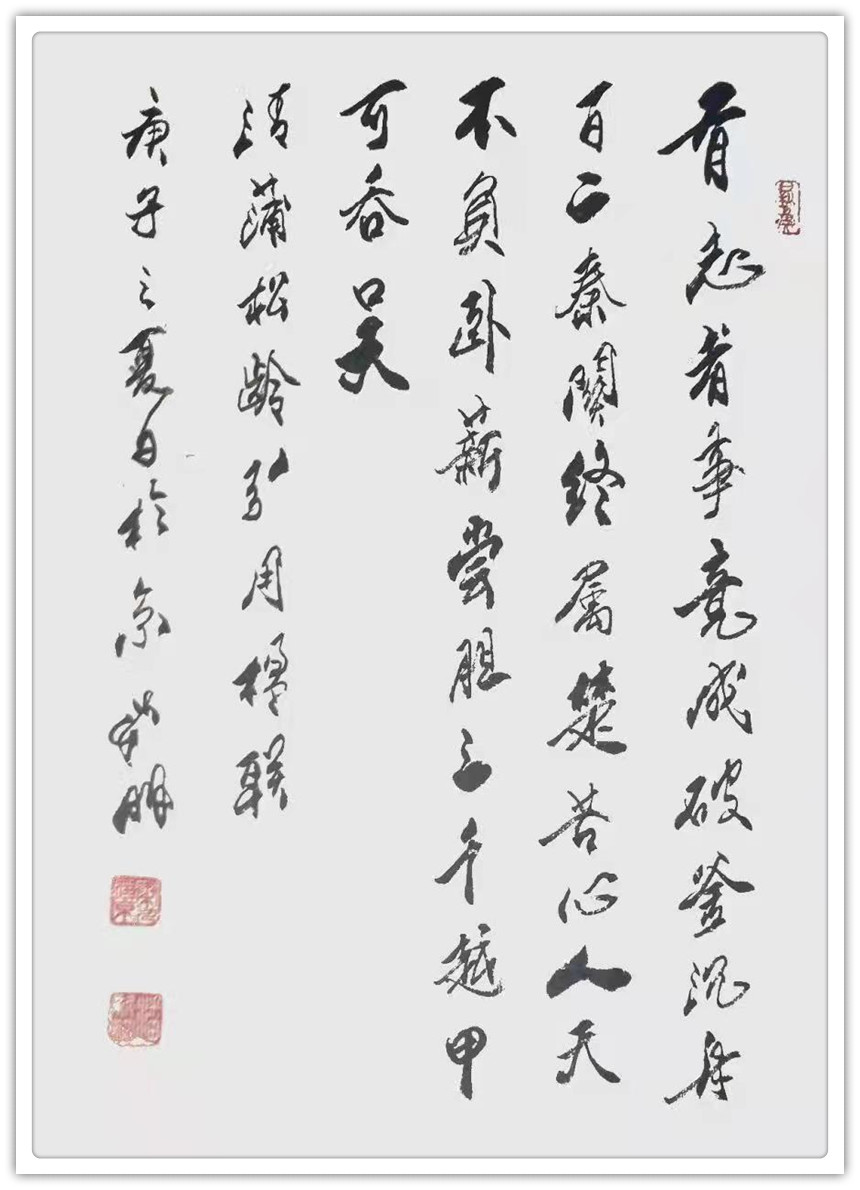 有志者事竟成破釜沉舟
百二秦関終属楚苦心人天
不負卧薪尝胆三千越甲
可吞吴
清蒲松龄引用楹联
庚子之夏日於京